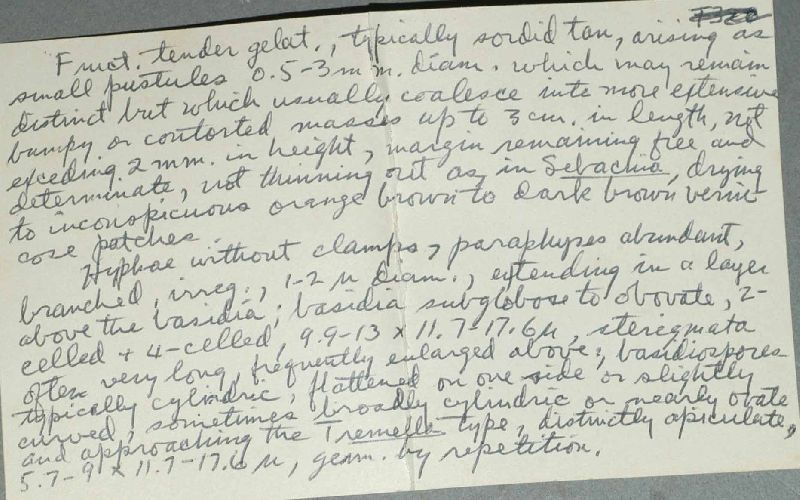 Fruct. tender gelat., typically sordid tan, arising as
small pustules 0.5-3 mm. diam. which may remain
distinct but which usually coalesce into more extensive
bumpy or contorted masses up to 3 cm. in length, not
exceding 2 mm. in height, margin remaining free and
determinate, not thinning out as in Sebacina, drying
to inconspicuous orange brown to dark brown verni-
cose patches.
Hyphae without clamps, paraphyses abundant,
branched, irreg., 1-2 µ diam., extending in a layer
above the basidia; basidia subglobose to obovate, 2-
celled + 4-celled, 9.9-13 x 11.7-17.6 µ, sterigmata
often very long, frequently enlarged above; basidiospores
typically cylindric, flattened on one side or slightly
curved, sometimes broadly cylindric or nearly ovate
and approaching the Tremella type, distinctly apiculate,
5.7-9 x 11.7-17.6 µ, germ. by repetition.